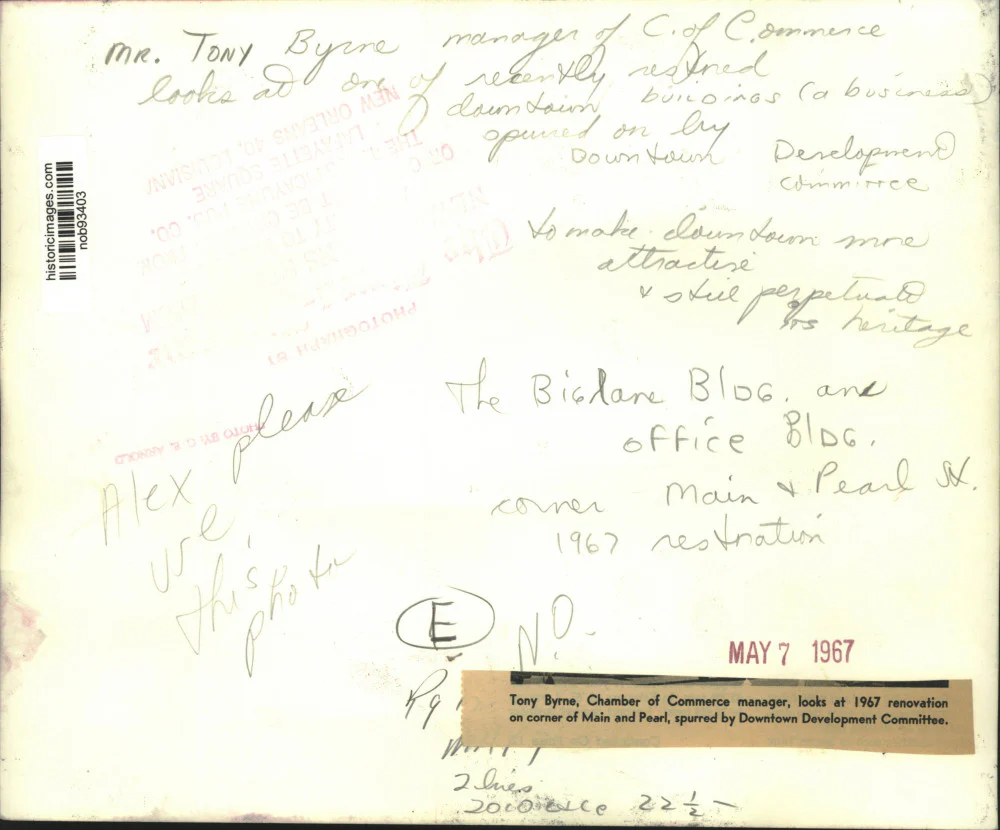 MR. TONY Byrne manager of C. of Commerce
looks at one of recently restored
downtown buildings (a business)
spurred on by
Downtown Development
Committee
to make downtown more
attractive
& still perpetuate
its heritage
historicimages.com
nob93403
NEW ORLEANS 40, LOUISIANA
LAFAYETTE SQUARE
PHOTOGRAPH BY
PHOTO BY: C. E. ARNOLD
The Biglane BLDG. and
office BLDG.
corner Main & Pearl St.
1967 restoration
Alex please
use
this
photo
E
N.O.
MAY 7 1967
Tony Byrne, Chamber of Commerce manager, looks at 1967 renovation
on corner of Main and Pearl, spurred by Downtown Development Committee.
2 lines
22 ½ -